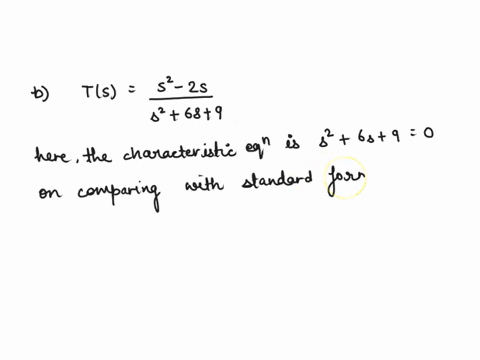 b) T(s) = s² - 2s / s² + 6s + 9
here, the characteristic eqⁿ is s² + 6s + 9 = 0
on comparing with standard for